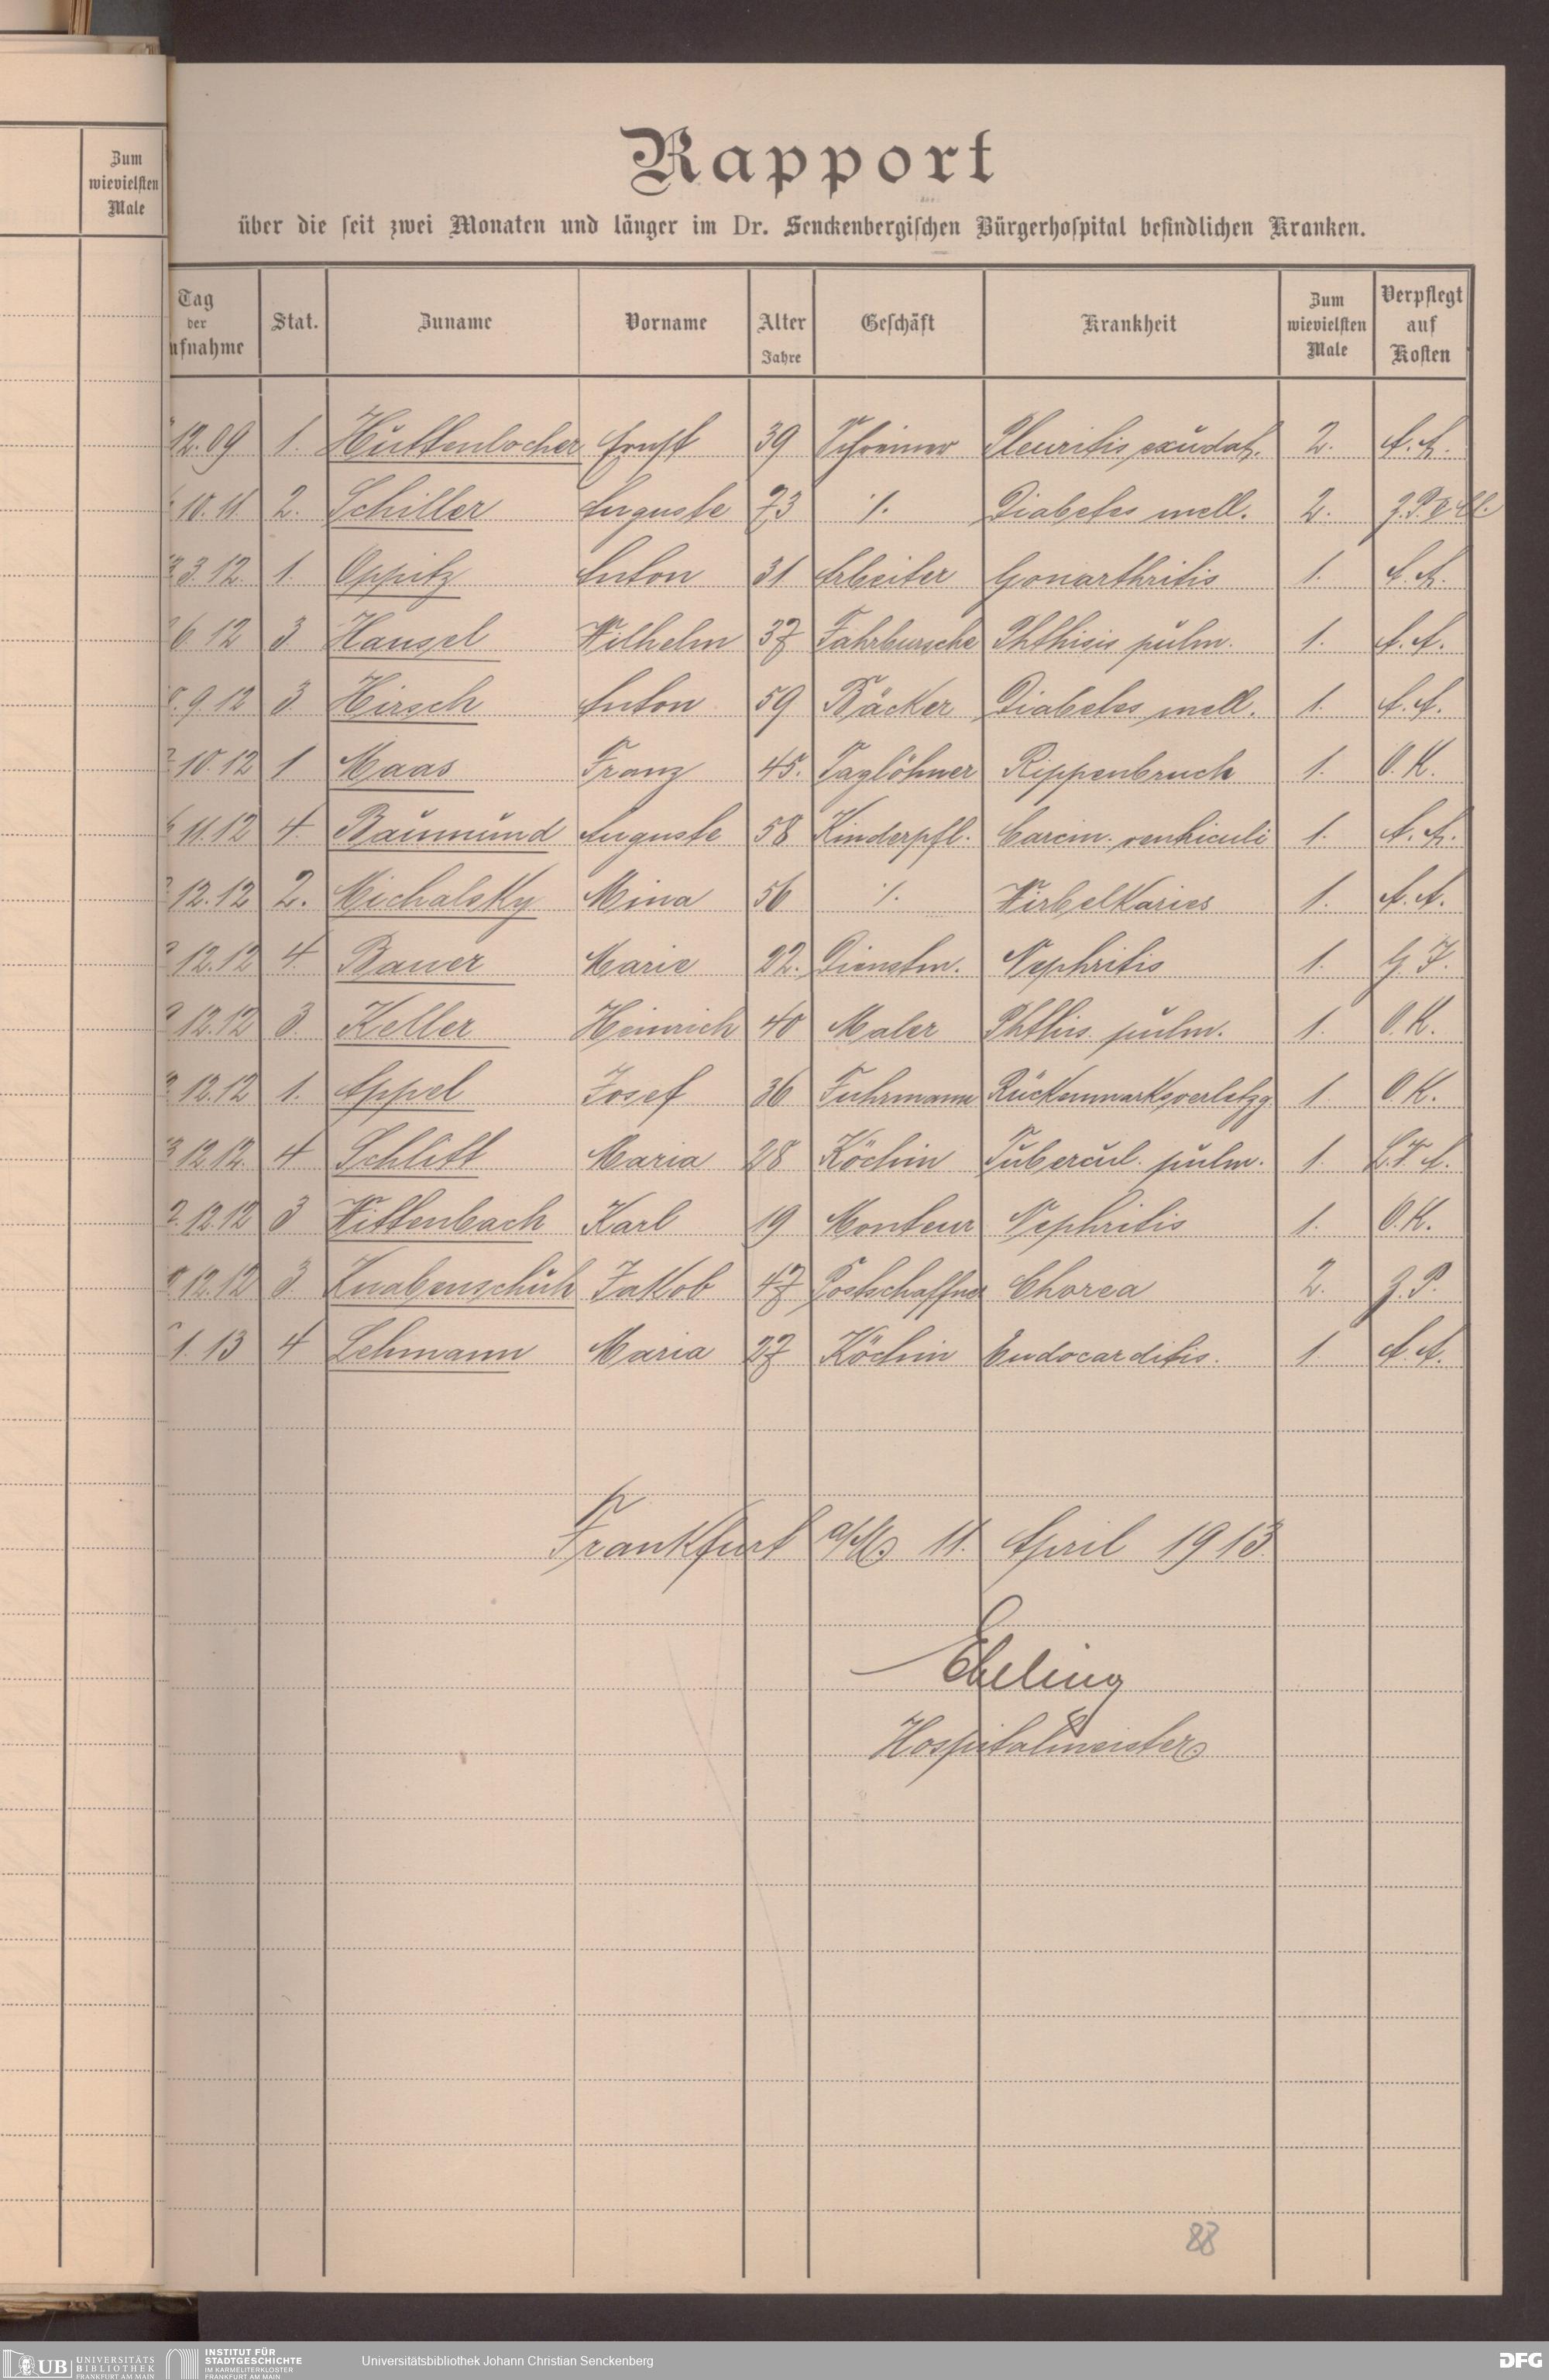 Zum
wievielſten
Male
Rapport
über die ſeit zwei Monaten und länger im Dr. Senckenbergiſchen Bürgerhoſpital befindlichen Kranken.
Tag der ufnahme Stat. Zuname Vorname Alter Jahre Geſchäft Krankheit Zum wievielſten Male Verpflegt auf Koſten
12.09 1. Hüttenlocher Ernst 39 Schreiner Pleuritis exudat. 2. A. A.
10.11 2. Schiller Auguste 73 ./. Diabetes mell. 2.
3.12. 1. Oppitz Anton 31 Arbeiter Gonarthritis 1. A. A.
6.12 3 Hansel Wilhelm 37 Fahrbursche Phthisis pulm. 1. A. A.
9.12 3 Hirsch Anton 59 Bäcker Diabetes mell. 1. A. A.
10.12 1 Maas Franz 45. Taglöhner Rippenbruch 1. O. K.
11.12 4. Baumund Auguste 58 Kinderpfl. Carcin. ventriculi 1. A. A.
12.12 2. Michalsky Mina 56 ./. Wirbelkaries 1. A. A.
12.12 4. Bauer Marie 22. Dienstm. Nephritis 1. G. J.
12.12 3. Keller Heinrich 40 Maler Phthis. pulm. 1. O. K.
12.12 1. Appel Josef 36 Fuhrmann Rückenmarksverletzg. 1 O. K.
12.12. 4 Schlitt Maria 28 Köchin Tubercul. pulm. 1. L. V. A.
12.12 3 Wittenbach Karl 19 Monteur Nephritis 1. O. K.
12.12 3 Knabenschuh Jakob 47 Postschaffner Chorea 2. Z. P.
1.13 4 Lehmann Maria 27 Köchin Endocarditis. 1 A. A.
Frankfurt a/M. 11. April 1913.
Ebeling
Hospitalmeister
88
UB UNIVERSITÄTS
BIBLIOTHEK
FRANKFURT AM MAIN
INSTITUT FÜR
STADTGESCHICHTE
IM KARMELITERKLOSTER
FRANKFURT AM MAIN
Universitätsbibliothek Johann Christian Senckenberg
DFG